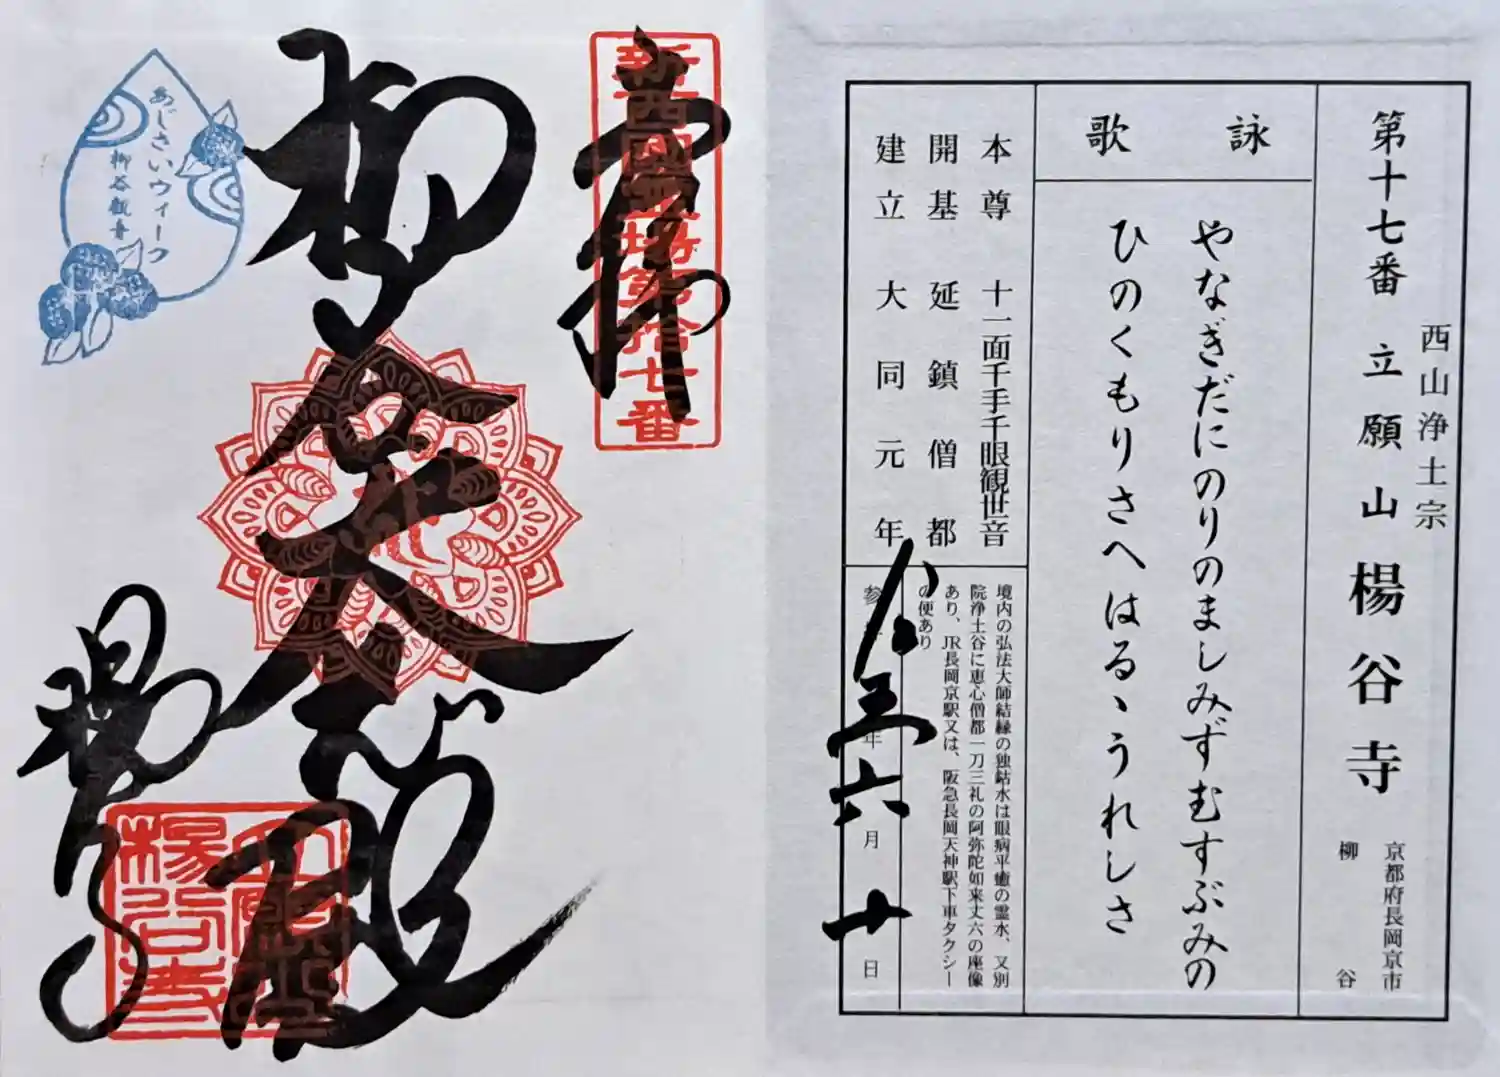 西山浄土宗
第十七番 立願山 楊谷寺
京都府長岡京市
柳谷
詠歌
やなぎだにのりのましみずむすぶみの
ひのくもりさへはるゝうれしさ
本尊 十一面千手千眼観世音
開基 延鎮僧都
建立 大同元年
境内の弘法大師結縁の独鈷水は眼病平癒の霊水、又別
院浄土谷に恵心僧都一刀三礼の阿弥陀如来丈六の座像
あり、JR長岡京駅又は、阪急長岡天神駅下車タクシー
の便あり
参 三年六月十日
奉拝
新西國霊場第拾七番
柳谷
楊谷寺
立願山
楊谷寺
あじさいウィーク
柳谷観音